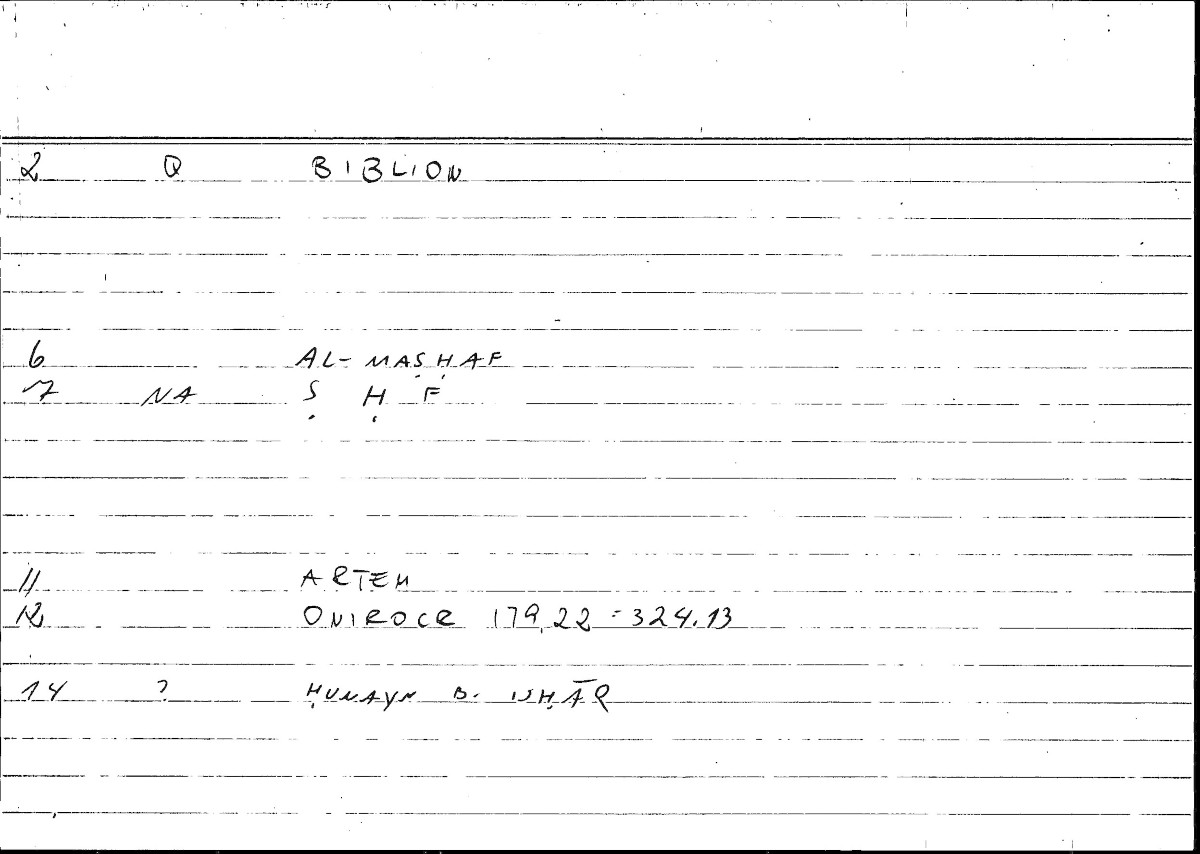 2 Q BIBLION
6 AL-MAṢḤAF
7 NA Ṣ Ḥ F
11 ARTEM
12 ONIROCR 179,22 = 324.13
14 ? ḤUNAYN B. ISḤĀQ